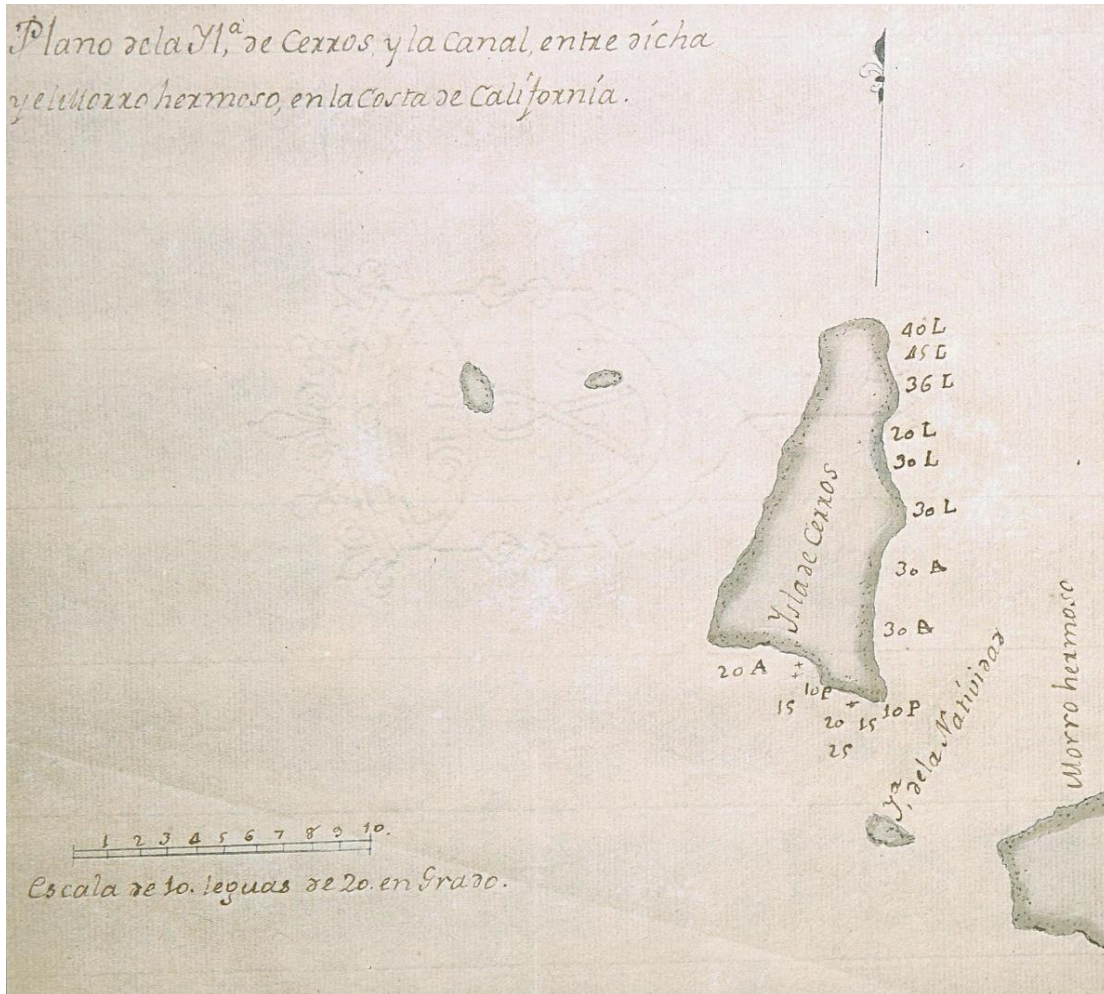 Plano dela Yl,ª de Cerros, y la Canal, entre dicha
y el Morro hermoso, en la Costa de California.
40 L
45 L
36 L
20 L
30 L
30 L
30 A
30 A
Ysla de Cerros
20 A
10 P
15
20
15
10 P
25
Yª, dela Natividad
Morro hermoso
1 2 3 4 5 6 7 8 9 10.
Escala de 10. leguas de 20. en Grado.